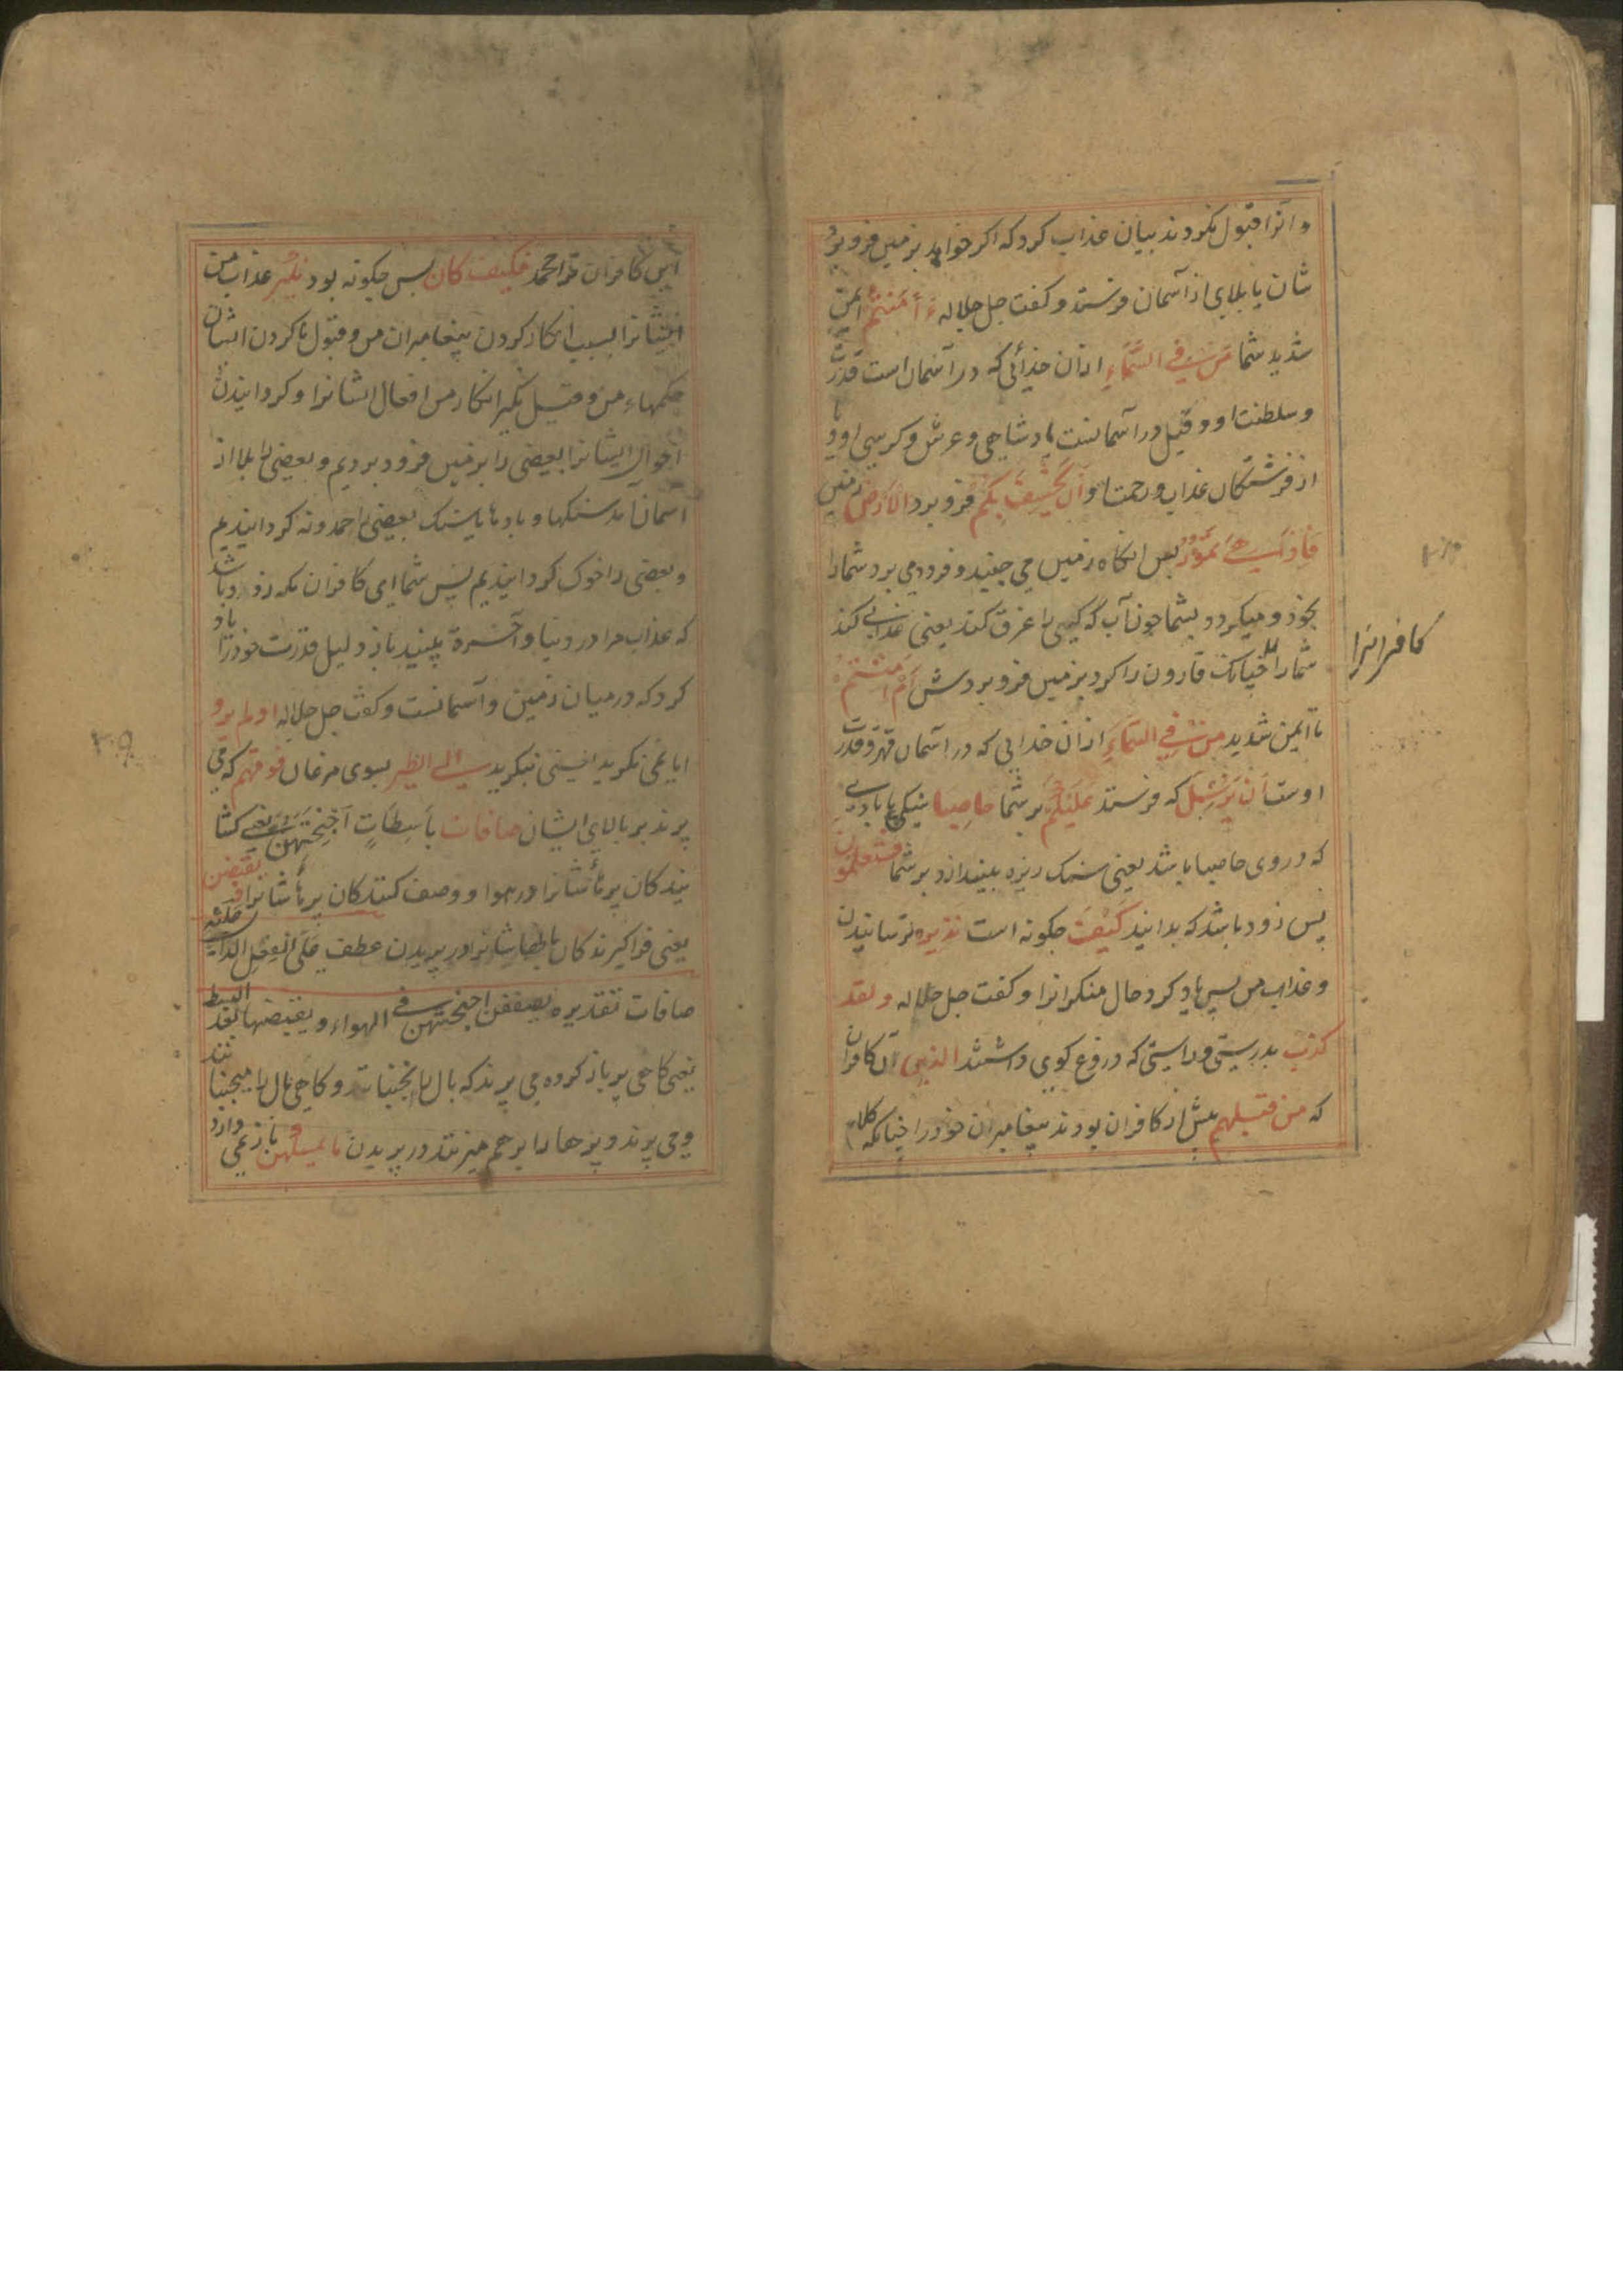 و آنرا قبول نکردند بیان عذاب کرد که اکر خواهد بزمین فرو برد
شان یا بلای از آسمان فرستد و کفت جل جلاله ءَاَمِنْتُمْ ایمن
شدید شما مَنْ فِی السَّمَاءِ ازان خدائی که در آسمان است قدرت
و سلطنت او و قیل در آسمانست پادشاهی و عرش و کرسی او و یا
از فرشتکان عذاب و رحمت او اَنْ یَخْسِفَ بِکُمُ فرو برد الْاَرْضَ زمین
فَاِذَا هِیَ تَمُوْرُ پس انکاه زمین می جنبد و فرود می برد شما را
بخود و میکردد بشما چون آب که کسی را غرق کند یعنی عذاب کند
شما را چنانک قارون را کرد بزمین فرو بردش اَمْ اَمِنْتُمْ
کافرانرا
یا ایمن شدید مَنْ فِی السَّمَاءِ ازان خدایی که در آسمان قهر و قدرت
اوست اَنْ یُرْسِلَ که فرستد عَلَیْکُمْ بر شما حاصِبا سنکی یا بادی
که در وی حاصبا باشد یعنی سنک ریزه بیندازد بر شما فستعلمون
پس زود باشد که بدانید کَیْفَ چکونه است نذیره ترسانیدن
و عذاب من پس یاد کرد حال منکرانرا و کفت جل جلاله و لقد
کذب بدرستی و راستی که دروغ کوی داشتند الذین آن کافران
که من قبلهم پیش از کافران بودند پیغامبران خود را چنانکه
این کافران ترا محمد فکیف کان پس چکونه بود نکیر عذاب من
ایشانرا بسبب انکار کردن پیغامبران من و قبول ناکردن ایشان
حکمهاء من و قیل نکیر انکار من افعال ایشانرا و کردانیدن
احوال ایشانرا بعضی را بزمین فرود بردیم و بعضی را بلا از
آسمان آمد سنکها و بادها یا سنک بعضی را حمدونه کردانیدیم
و بعضی را خوک کردانیدیم پس شما ای کافران مکه زود باشد
که عذاب مرا در دنیا و آخرة ببینید باز دلیل قدرت خود را یاد
کرد که در میان زمین و آسمانست و کفت جل جلاله اولم یرو
ایا نمی نکرید یعنی نبکرید الی الطیر بسوی مرغان فوقهم که می
پرند بر بالای ایشان صافات بَاسِطَاتٍ اَجْنِحَتَهُنَّ یعنی کشا
یندکان پرهاشانرا در هوا و وصف کنندکان پرهاشانرا یقبضن
یعنی فراکیرندکان بالهاشانرا در پریدن عطف عَلَی الفِعْلِ
صافات تقدیره یصففن اجنحتهن فی الهواء و یقبضنها بعد البسط
یعنی کاهی پر باز کرده می پرند که بال را نجنبانند و کاهی بال را میجنبانند
و می پرند و پرها را بر هم میزنند در پریدن ما یمسکهن باز نمی دارد